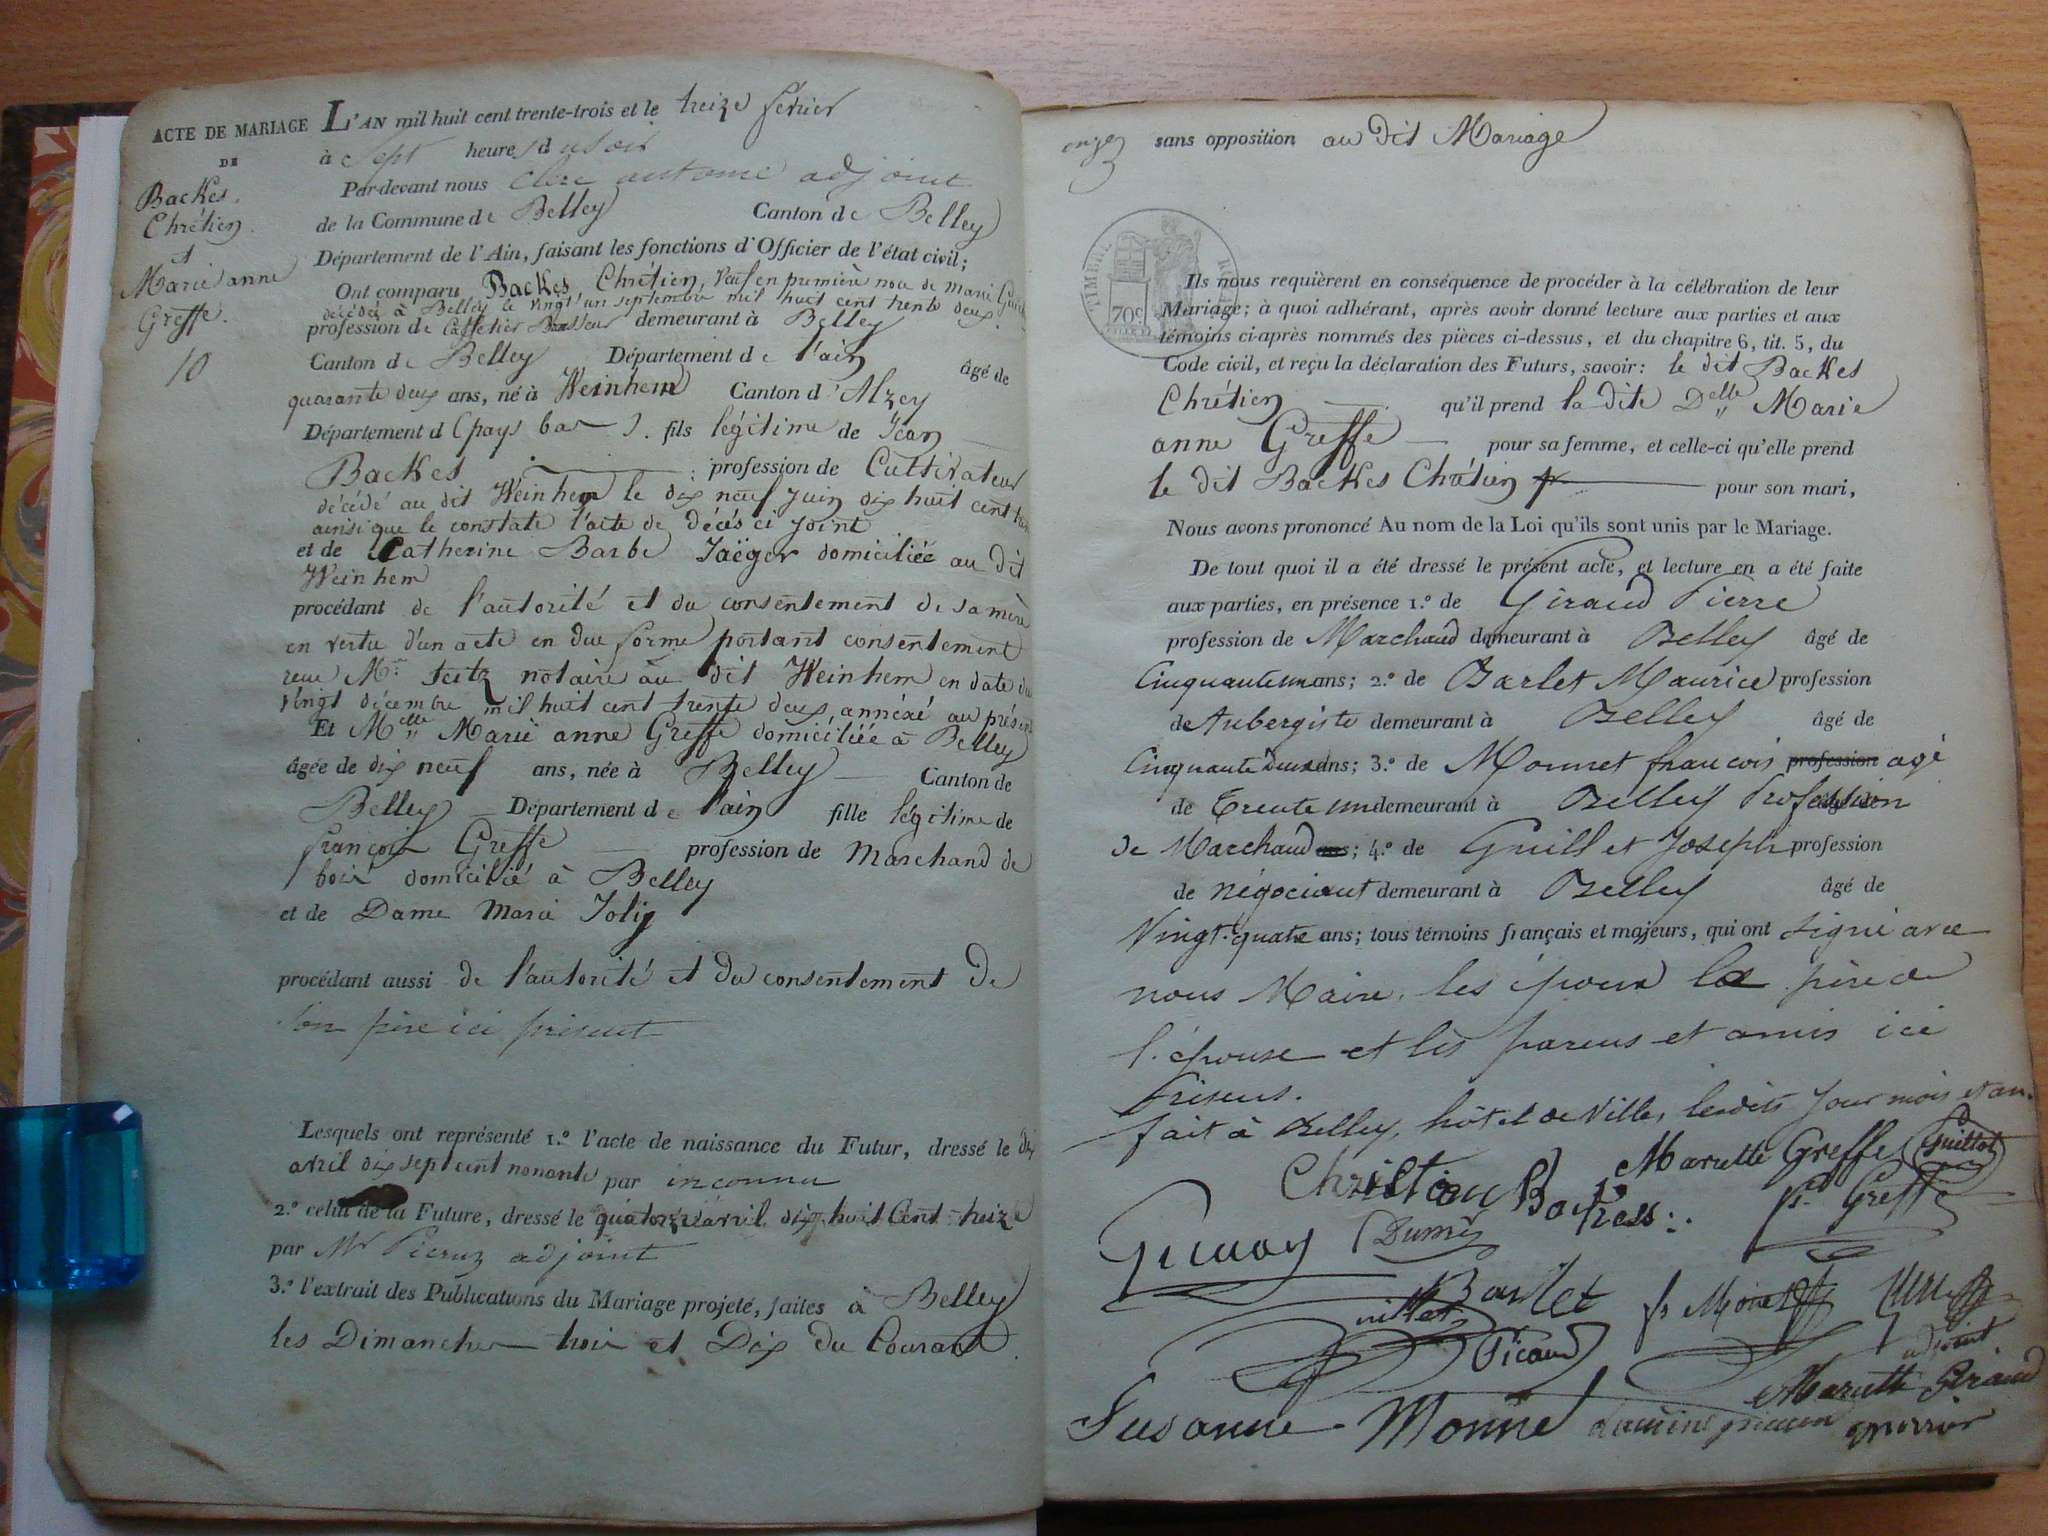 ACTE DE MARIAGE
DE
Backes
Chrétien
et
Marie anne
Greffe.
10
L'AN mil huit cent trente-trois et le treize février
à sept heures du soir
Par-devant nous Clerc antoine adjoint
de la Commune de Belley Canton de Belley
Département de l'Ain, faisant les fonctions d'Officier de l'état civil;
Ont comparu Backes, Chrétien, veuf en première noce de marie
décédée à Belley le vingt un septembre mil huit cent trente deux.
profession de Caffetier Brasseur demeurant à Belley
Canton de Belley Département de l'ain âgé de
quarante deux ans, né à Weinhem Canton d'Alzey
Département d (pays bas). fils légitime de Jean
Backes profession de Cultivateur
décédé au dit Weinhem le dix neuf Juin dix huit cent
ainsi que le constate l'acte de décès ci joint
et de Catherine Barbe Jaëger domiciliée au dit
Weinhem
procédant de l'autorité et du consentement de sa mère
en vertu d'un acte en due forme portant consentement
reçu Mr. notaire au dit Weinhem en date du
vingt décembre mil huit cent trente deux annéxé au présent
Et Melle Marie anne Greffe domiciliée à Belley
âgée de dix neuf ans, née à Belley Canton de
Belley Département de l'ain fille légitime de
françois Greffe profession de Marchand de
bois domicilié à Belley
et de Dame Marie Joly
procédant aussi de l'autorité et du consentement de
son père ici présent
Lesquels ont représenté 1.º l'acte de naissance du Futur, dressé le dix
avril dix sept cent nonante par inconnu
2.º celui de la Future, dressé le quatorze avril dix huit Cent treize
par Mr adjoint
3.º l'extrait des Publications du Mariage projeté, faites à Belley
les Dimanches trois et Dix du Courant.
onze
sans opposition au dit Mariage
TIMBRE ROYAL
70c
Ils nous requièrent en conséquence de procéder à la célébration de leur
Mariage; à quoi adhérant, après avoir donné lecture aux parties et aux
témoins ci-après nommés des pièces ci-dessus, et du chapitre 6, tit. 5, du
Code civil, et reçu la déclaration des Futurs, savoir: le dit Backes
Chrétien qu'il prend la dite Delle Marie
anne Greffe pour sa femme, et celle-ci qu'elle prend
le dit Backes Chrétien pour son mari,
Nous avons prononcé Au nom de la Loi qu'ils sont unis par le Mariage.
De tout quoi il a été dressé le présent acte, et lecture en a été faite
aux parties, en présence 1.º de Giraud Pierre
profession de Marchand demeurant à Belley âgé de
Cinquante un ans; 2.º de Barlet Maurice profession
de Aubergiste demeurant à Belley âgé de
Cinquante Deux ans; 3.º de Monnet françois profession agé
de Trente un demeurant à Belley Profession
de Marchand ans; 4.º de Guillet Joseph profession
de négociant demeurant à Belley âgé de
Vingt-quatre ans; tous témoins français et majeurs, qui ont signé avec
nous Maire, les époux le père de
l'épouse et les parens et amis ici
Présens.
fait à Belley, hôtel de Ville, lesdits jour mois et an.
Mariette Greffe Guillot
Christian Backess
fs. Greffe
Duméy
Barlet
fs Monet
uillet
Picaud
adjoint
Mariette Giraud
Susanne Monne